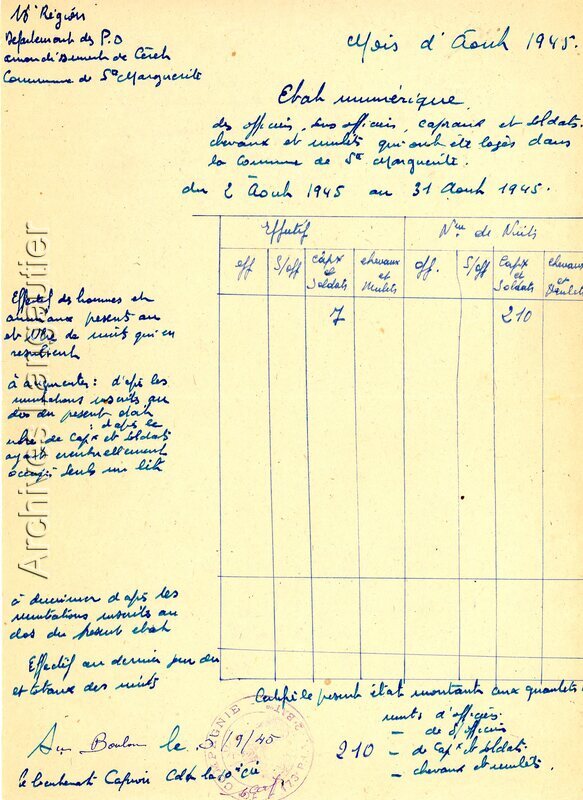 16e Région
Département des P.O
arrondissement de Céret
Commune de Ste Marguerite
Mois d'Août 1945.
Etat numérique
des officiers, sous officiers, capraux et soldats.
chevaux et mulets qui ont été logés dans
la Commune de Ste Marguerite.
du 2 Août 1945 au 31 Août 1945.
Effectif
Nbre de Nuits
off
S/off
Capx et Soldats
chevaux et Mulets
off.
S/off
Capx et Soldats
chevaux et Mulets
7
210
Effectif des hommes et
animaux présent au
et Nbre de nuits qui en
résultent
à augmenter : d'après les
mutations inscrits au
dos du présent état
: d'après le
nbre de Capx et soldats
ayant éventuellement
occupés seuls un lit
à diminuer d'après les
mutations inscrits au
dos du présent état
Effectif au dernier jour du
et totaux des nuits
Certifie le présent état montant aux quantités
nuits d'officiers
- de s/officiers
210 - de Capx et soldats.
- chevaux et mulets.
Boulou le /9/45
le lieutenant Capron Cdt la 10e Cie
COMPAGNIE
Archives Lengautier